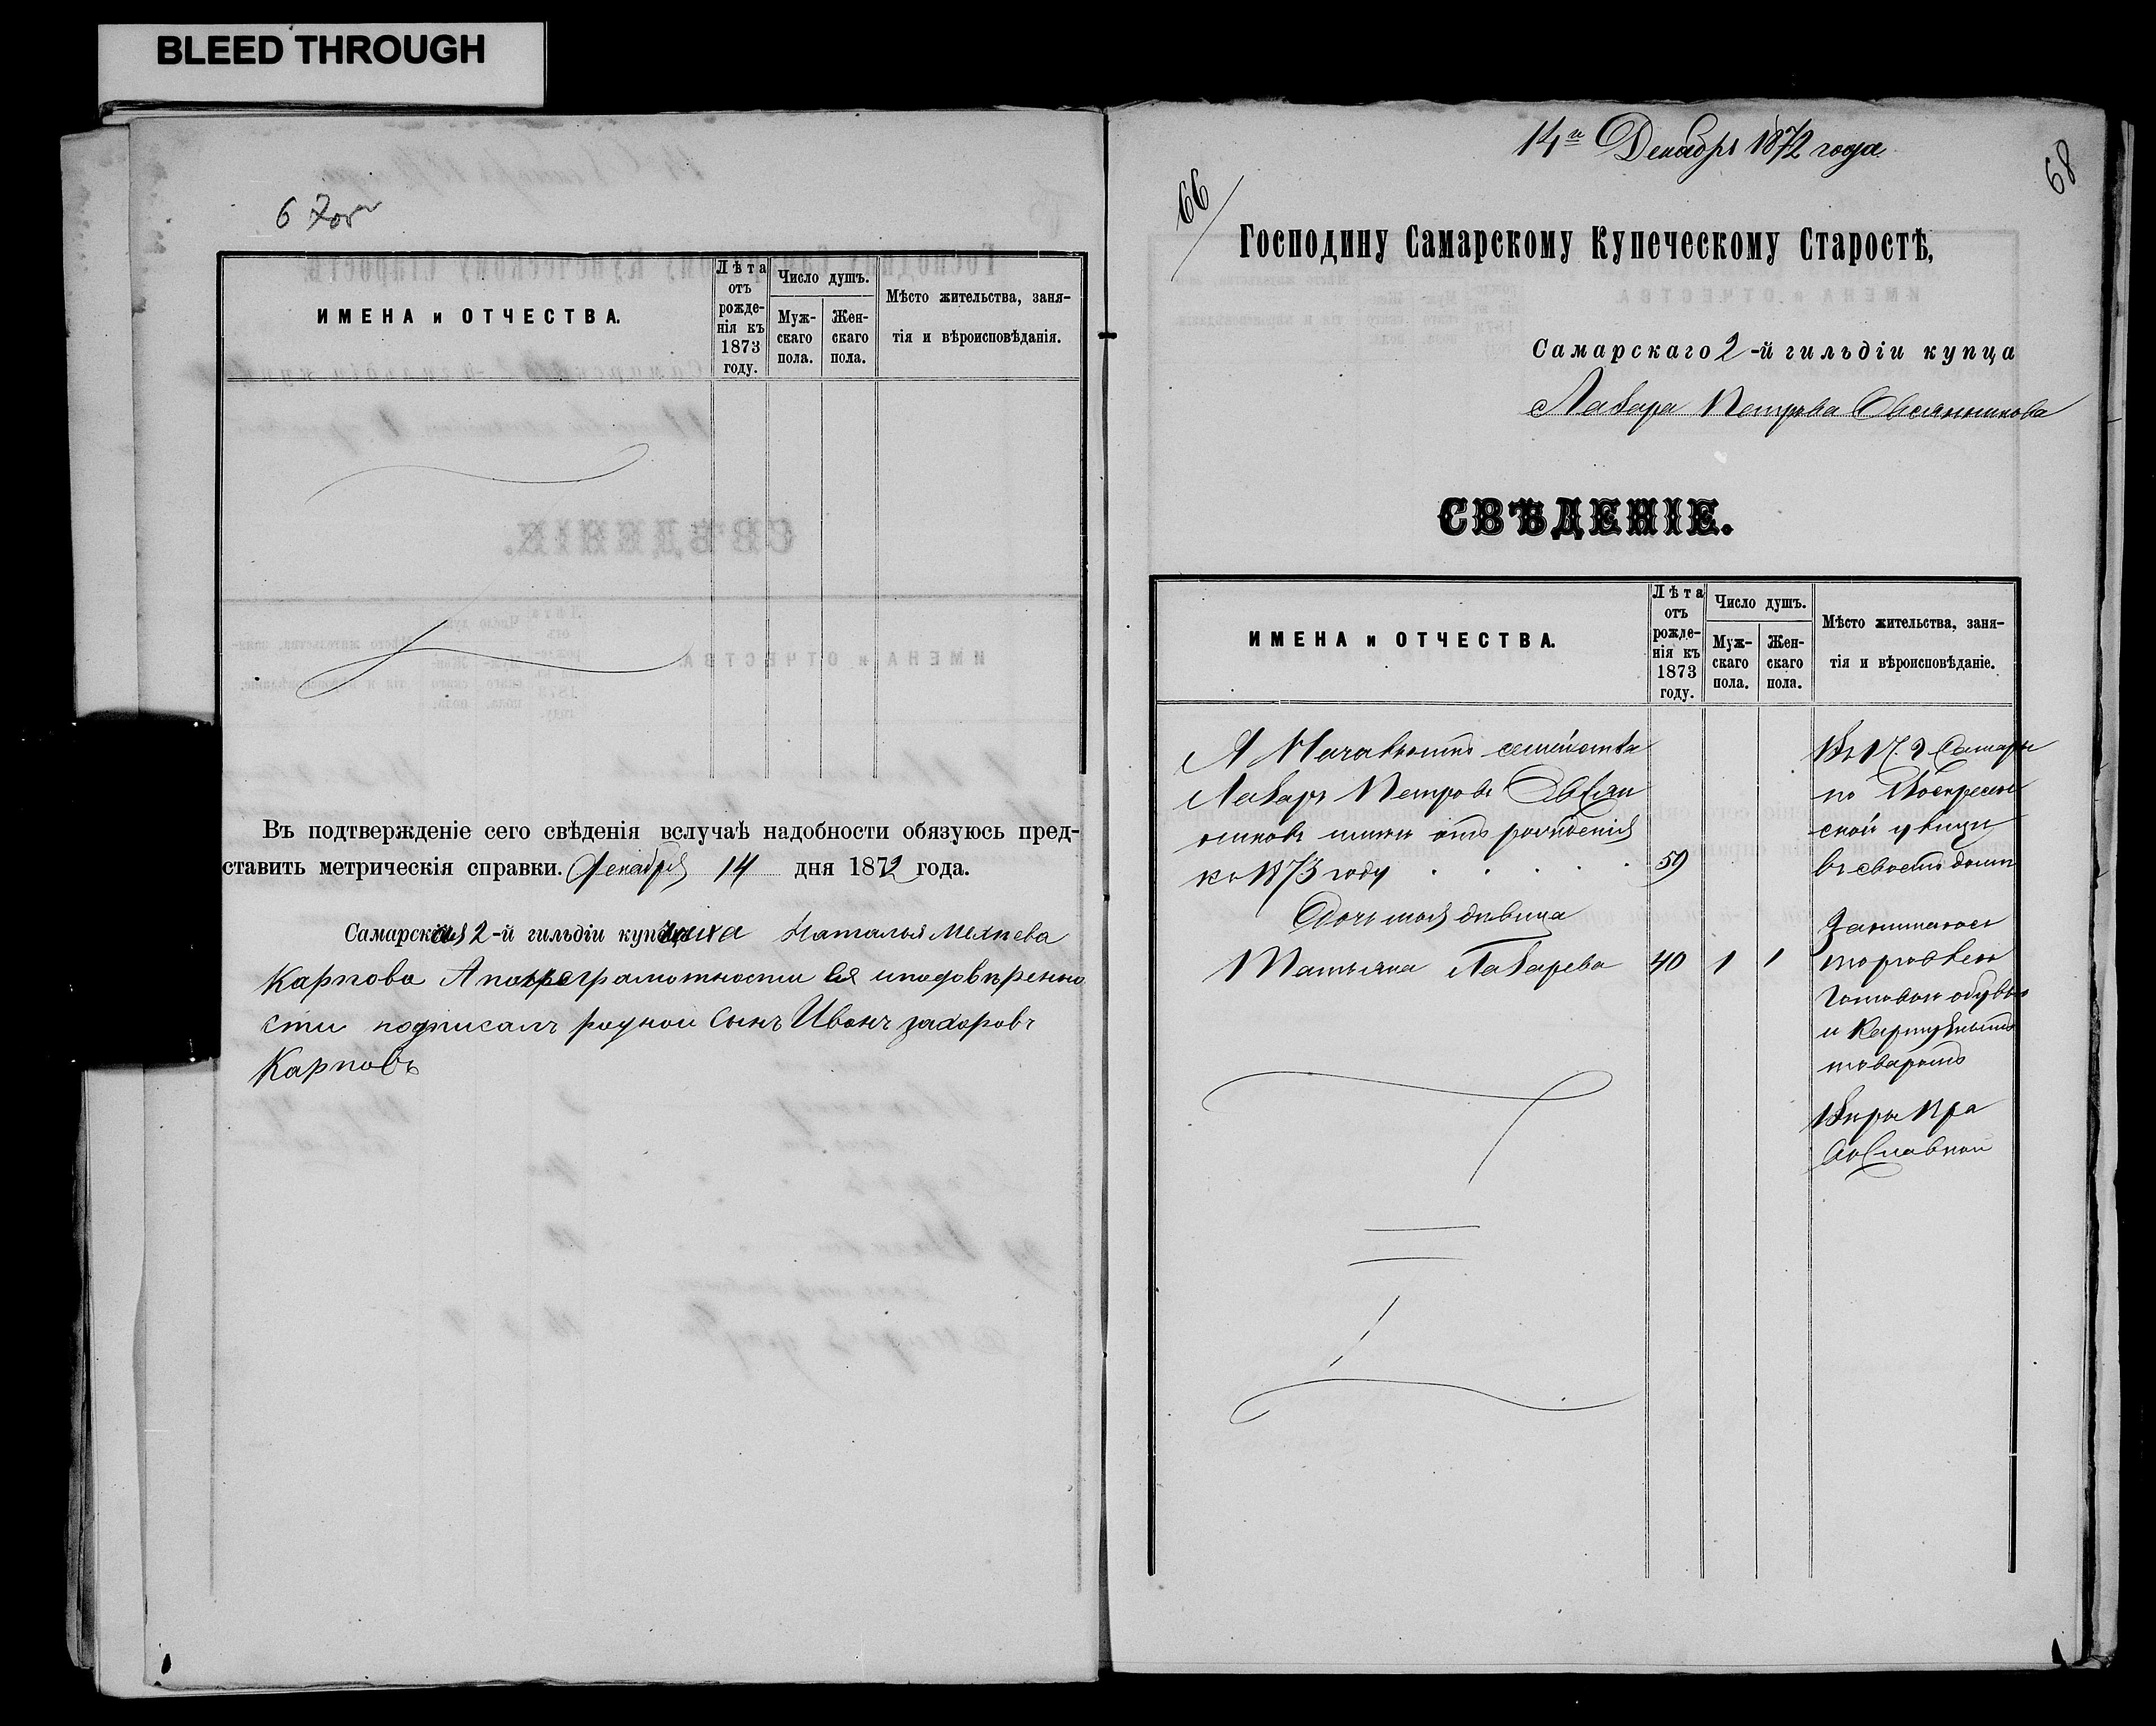 BLEED THROUGH
67об
ИМЕНА и ОТЧЕСТВА.
Лѣта отъ рожде-нія къ 1873 году.
Число душъ.
Муж-скаго пола.
Жен-скаго пола.
Мѣсто жительства, заня-
тія и вѣроисповѣданія.
Въ подтвержденіе сего свѣденія вслучаѣ надобности обязуюсь пред-
ставить метрическія справки. Декабря 14 дня 1872 года.
Самарская 2-й гильдіи купчиха Наталья
Карпова А грамотности Ея
сти подписалъ родной Сынъ Иванъ захаровъ
Карповъ
14го Декабря 1872 года
66
68
Господину Самарскому Купеческому Старостѣ,
Самарскаго 2-й гильдіи купца
Лазаря Петрова Овсянникова
СВѢДЕНІЕ.
ИМЕНА и ОТЧЕСТВА.
Лѣта отъ рожде-нія къ 1873 году.
Число душъ.
Муж-скаго пола.
Жен-скаго пола.
Мѣсто жительства, заня-
тія и вѣроисповѣданіе.
Я семейства
Лазарь Петровъ Овсян
никовъ отъ рожденія
къ 1873 году 59
Дочь моя дѣвица
Татьяна Лазарева 40 1 1
Въ Г. Самаре
по Воскресен
ской улицы
въ своемъ доме
Занимаюсь
торговлею
Готовой обувью
и Картузнымъ
товаромъ
Веры Пра
вославной